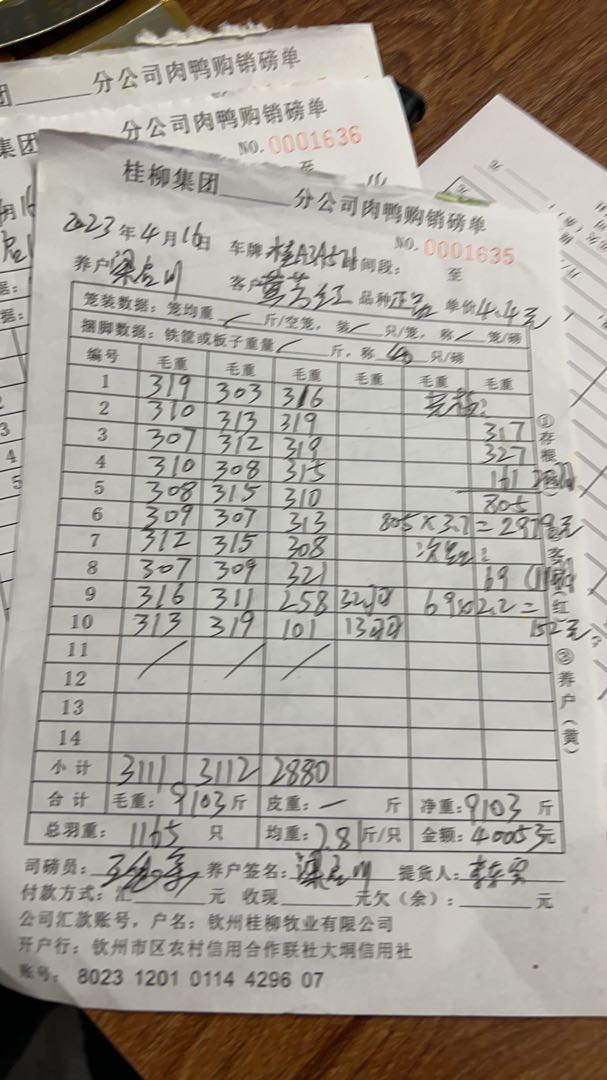 分公司肉鸭购销磅单
分公司肉鸭购销磅单
集团
NO.0001636
至
桂柳集团 分公司肉鸭购销磅单
NO.0001635
2023年4月16日 车牌 间段： 至
养户 客户 品种 单价4.4元
笼装数据：笼均重 / 斤/空笼，装 / 只/笼，称 / 笼/磅
捆脚数据：铁筐或板子重量 / 斤，称 40 只/磅
编号 毛重 毛重 毛重 毛重 毛重 毛重
1 319 303 316
2 310 313 319 317
3 307 312 319 327
4 310 308 315 161
5 308 315 310 805
6 309 307 313 805×3.7=2979元
7 312 315 308
8 307 309 321 69
9 316 311 258 32 69×2.2=
10 313 319 101 13 152元
11 / / /
12
13
14
小计 3111 3112 2880
合计 毛重：9103斤 皮重：— 斤 净重：9103斤
总羽重：1165 只 均重：7.81斤/只 金额：40053元
司磅员： 养户签名： 提货人：
付款方式：汇 元 收现 元欠（余）： 元
公司汇款账号，户名：钦州桂柳牧业有限公司
开户行：钦州市区农村信用合作联社大垌信用社
账号： 8023 1201 0114 4296 07
①存根
③养户（黄）